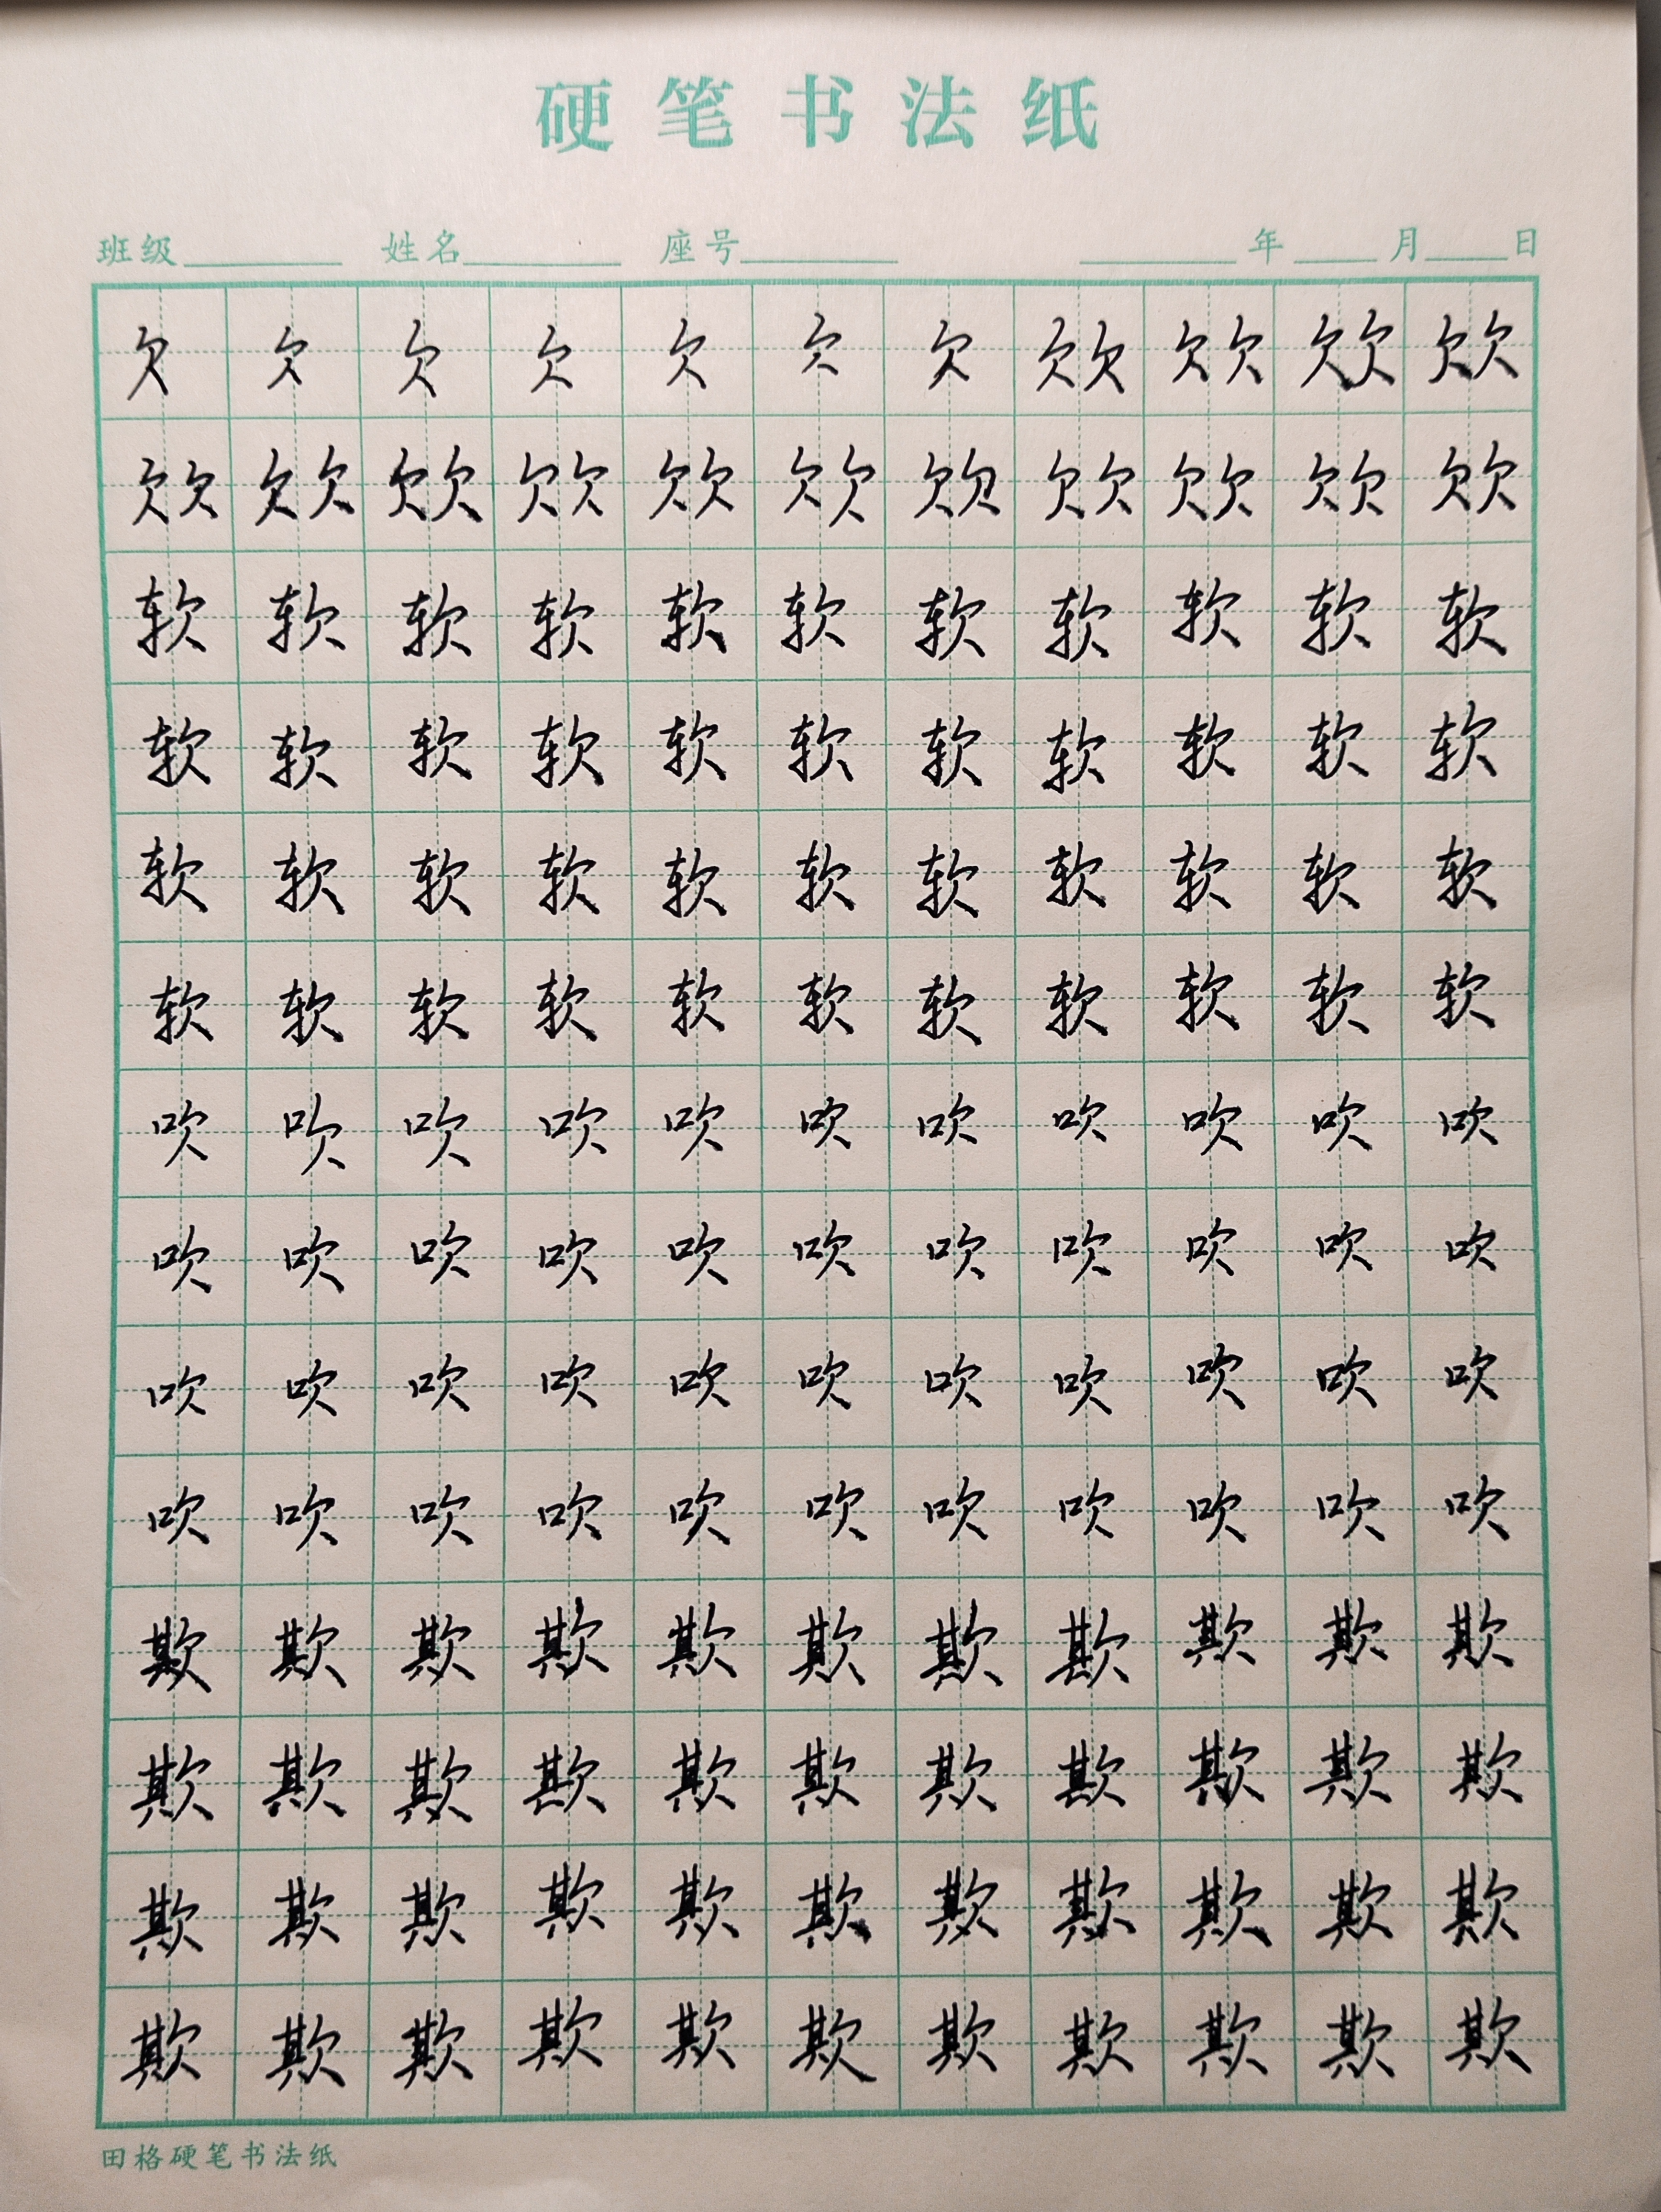 硬笔书法纸
班级 姓名 座号 年 月 日
欠 欠 欠 欠 欠 欠 欠 欠欠 欠欠 欠欠 欠欠
欠欠 欠欠 欠欠 欠欠 欠欠 欠欠 欠欠 欠欠 欠欠 欠欠 欠欠
软 软 软 软 软 软 软 软 软 软 软
软 软 软 软 软 软 软 软 软 软 软
软 软 软 软 软 软 软 软 软 软 软
软 软 软 软 软 软 软 软 软 软 软
吹 吹 吹 吹 吹 吹 吹 吹 吹 吹 吹
吹 吹 吹 吹 吹 吹 吹 吹 吹 吹 吹
吹 吹 吹 吹 吹 吹 吹 吹 吹 吹 吹
吹 吹 吹 吹 吹 吹 吹 吹 吹 吹 吹
欺 欺 欺 欺 欺 欺 欺 欺 欺 欺 欺
欺 欺 欺 欺 欺 欺 欺 欺 欺 欺 欺
欺 欺 欺 欺 欺 欺 欺 欺 欺 欺 欺
欺 欺 欺 欺 欺 欺 欺 欺 欺 欺 欺
田格硬笔书法纸